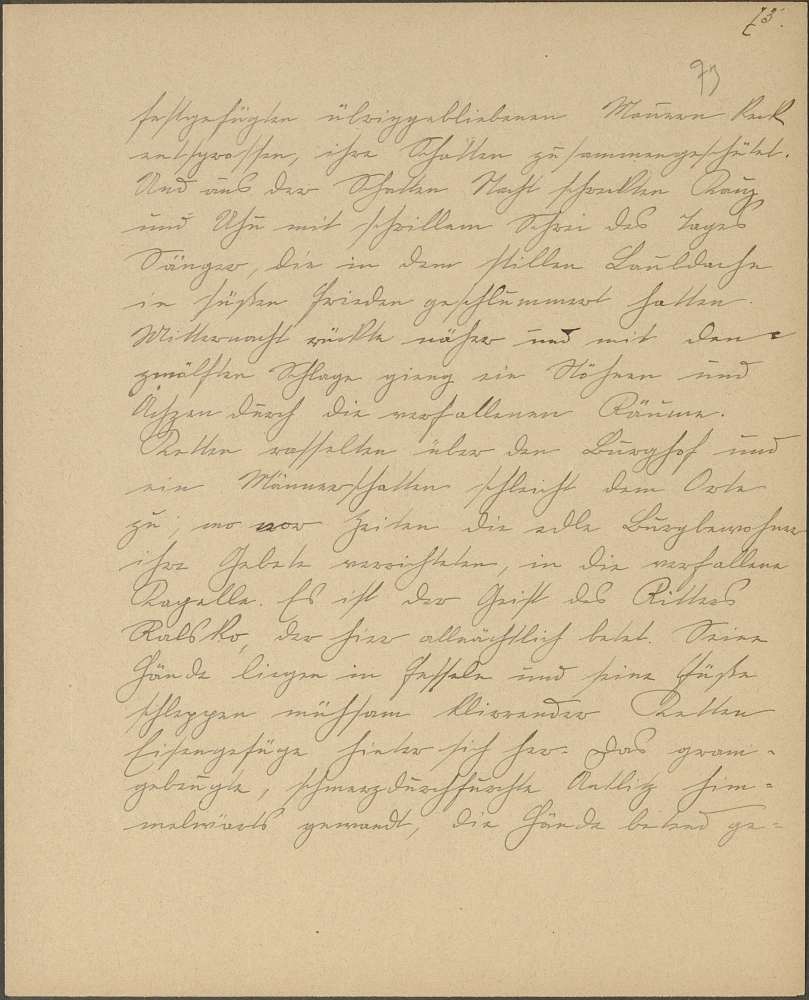 73
festgefügten übriggebliebenen Mauern keck
entsprossen, ihre Schatten zusammengeschüttet.
Und aus der Schatten Nacht schreckten Kauz
und Uhu mit schrillem Schrei des Tages
Sänger, die in dem stillen Laubdache
in süßen Frieden geschlummert hatten.
Mitternacht rückte näher und mit den
zwölften Schlage gieng ein Stöhnen und
Ächzen durch die verfallenen Räume.
Ketten rasselten über den Burghof und
ein Männerschatten schleicht dem Orte
zu, wo vor Zeiten die edle Burgbewohner
ihre Gebete verrichteten, in die verfallene
Kapelle. Es ist der Geist des Ritters
Ralsko, der hier allnächtlich betet. Seine
Hände liegen in Fesseln und seine Füße
schleppen mühsam klirrender Ketten
Eisengefüge hinter sich her. Das gram-
gebeugte, schmerzdurchfurchte Antlitz him-
melwärts gewandt, die Hände betend ge-